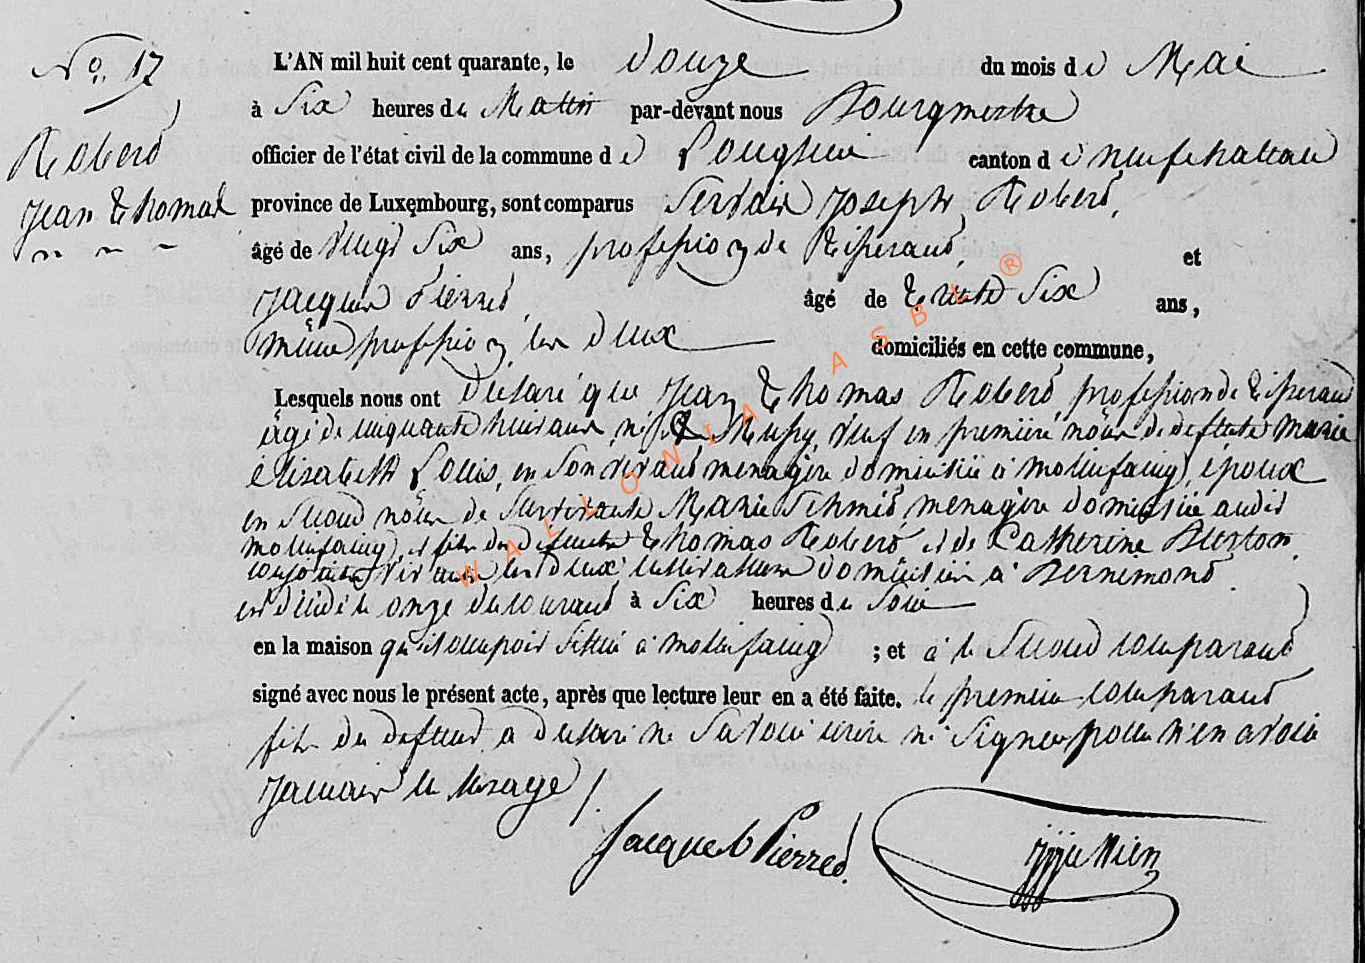 No. 17
Robert
Jean Thomas
L'AN mil huit cent quarante, le douze du mois de Mai
à Six heures du Matin par-devant nous Bourgmestre
officier de l'état civil de la commune de canton de neufchateau
province de Luxembourg, sont comparus Servais Joseph Robert,
âgé de vingt Six ans, profession de Tisserand, et
Jacques Pierret, âgé de trente Six ans,
même profession, les deux domiciliés en cette commune,
Lesquels nous ont déclaré que Jean Thomas Robert, profession de Tisserand
âgé de cinquante huit ans, né à veuf en première nôce de défunte Marie
Elisabeth Louis, en son vivant menagère domiciliée à molinfaing, époux
en second nôce de Survivante Marie Schmit, menagère domiciliée audit
molinfaing, et fils de défunts Thomas Robert et de Catherine
vivant les deux cultivateurs domiciliés à Bernimont
est décédé le onze du courant à Six heures du Soir
en la maison qu'il occupoit située à molinfaing ; et a le Second comparant
signé avec nous le présent acte, après que lecture leur en a été faite. le premier comparant
fils du défunt, a déclaré ne Savoir écrire ni Signer pour n'en avoir
Jamais eu l'usage /.
Jacques Pierret
WALLONIA ASBL ®